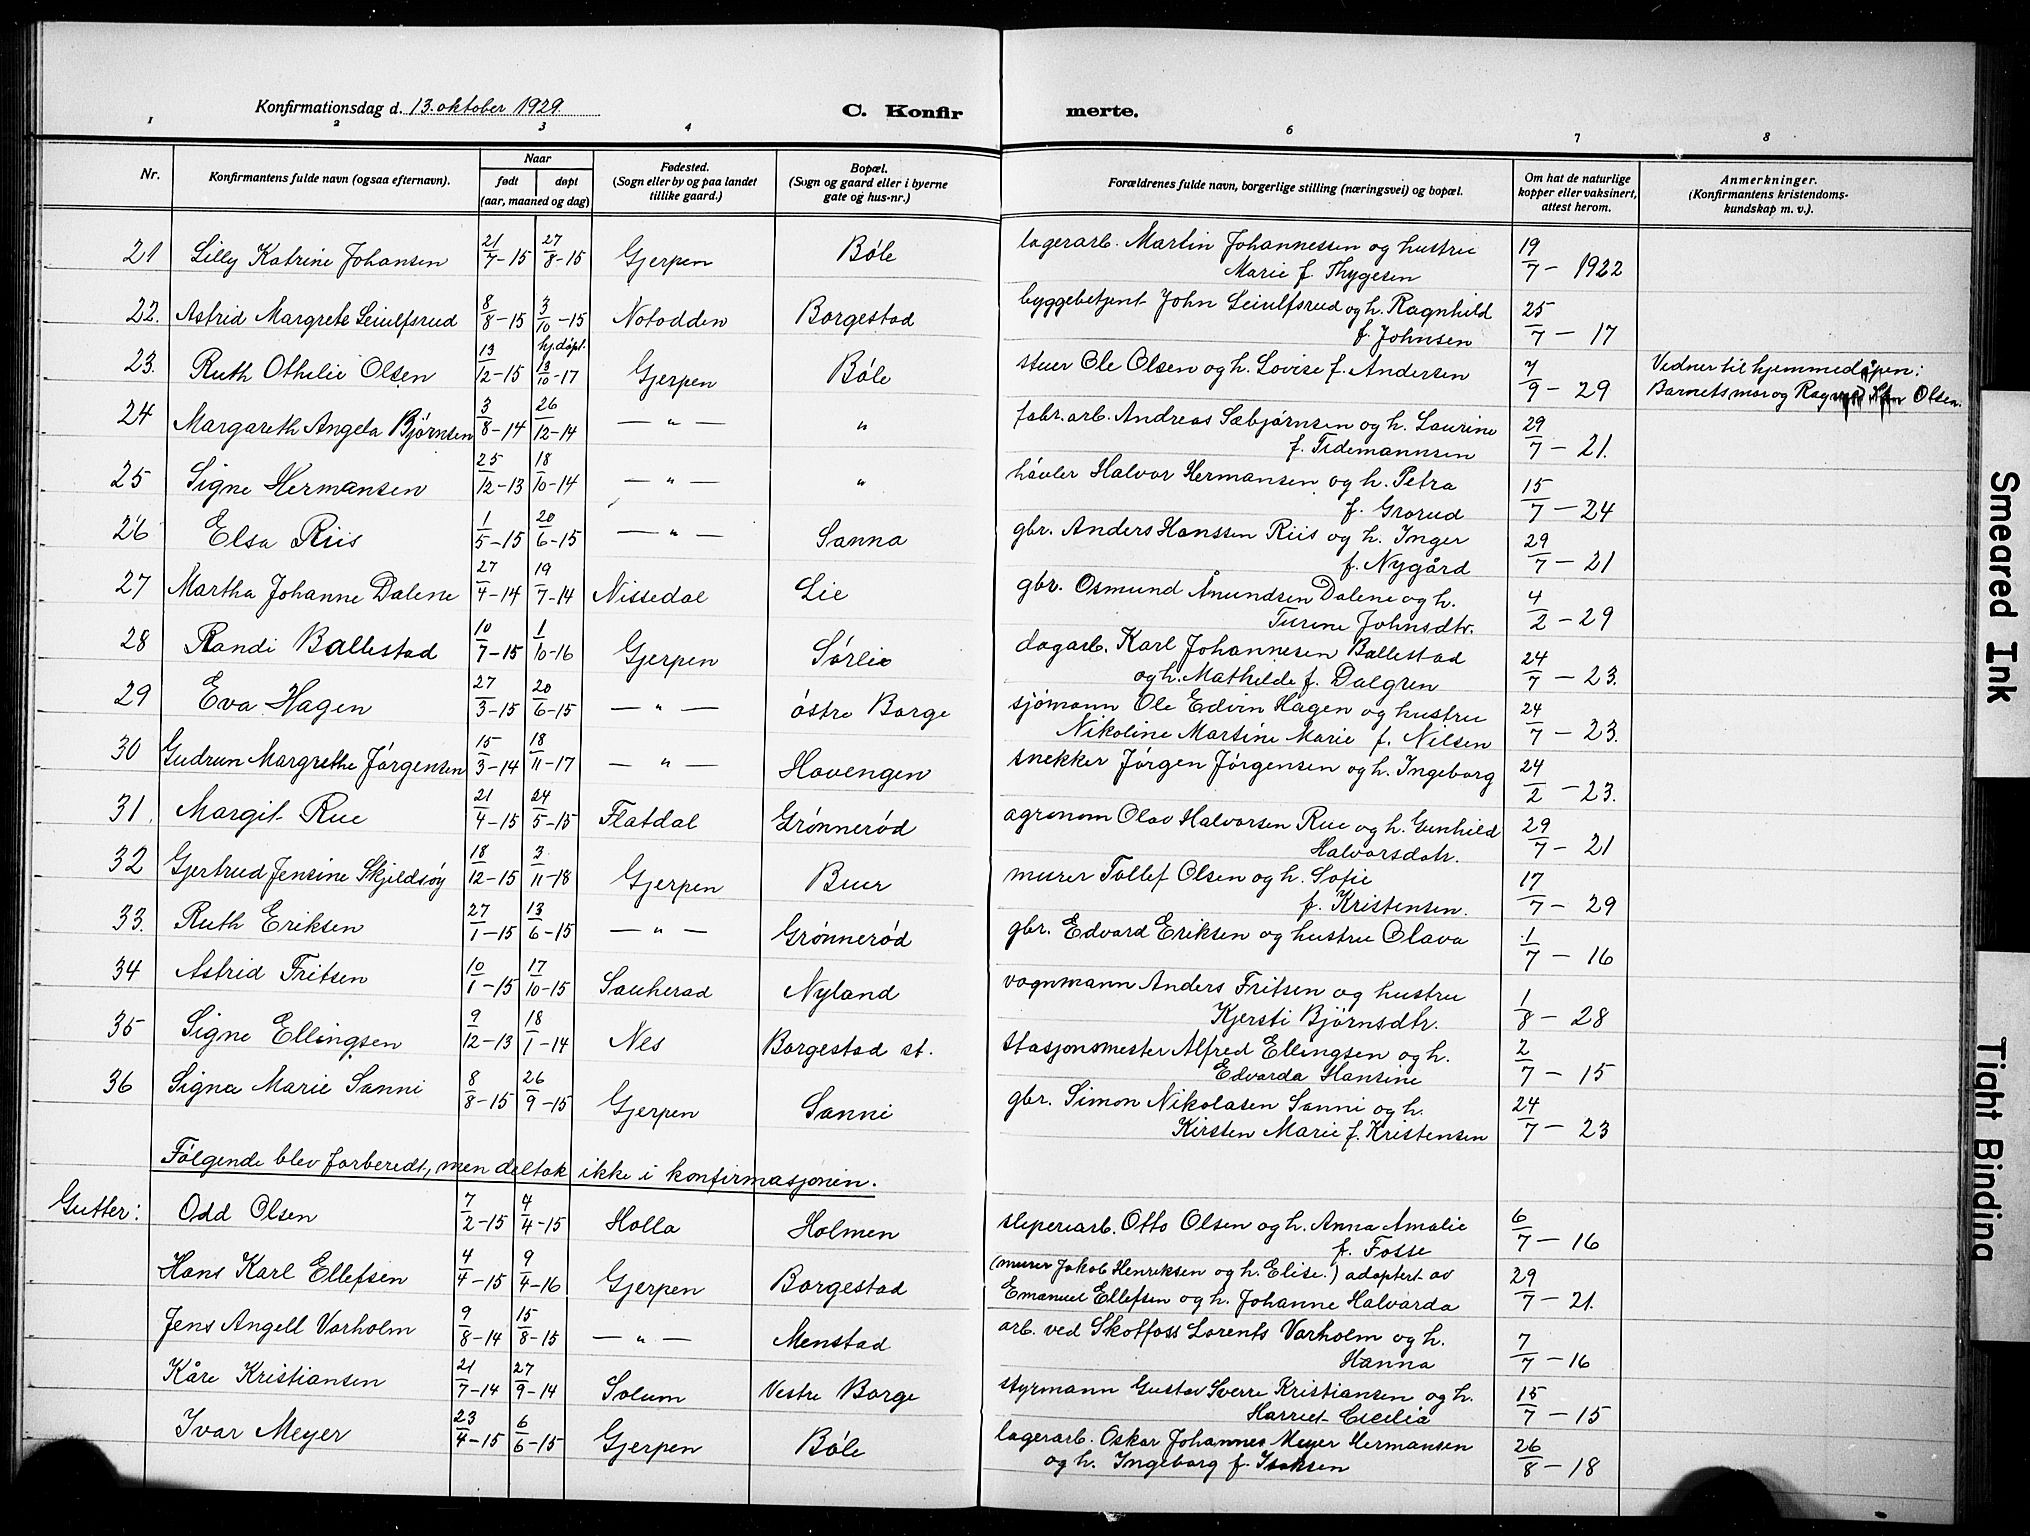 Konfirmationsdag d. 13. oktober 1929.
C. Konfirmerte.
1 2 3 4 6 7 8
Nr. Konfirmantens fulde navn (ogsaa efternavn). Naar født døpt (aar, maaned og dag) Fødested. (Sogn eller by og paa landet tillike gaard.) Bopæl. (Sogn og gaard eller i byerne gate og hus-nr.) Forældrenes fulde navn, borgerlige stilling (næringsvei) og bopæl. Om hat de naturlige kopper eller vaksinert, attest herom. Anmerkninger. (Konfirmantens kristendomskundskap m. v.).
21 Lilly Katrine Johansen 21/7-15 27/8-15 Gjerpen Bøle lagerarb. Martin Johannessen og hustru 19/7-1922
Marie f. Thygesen
22. Astrid Margrete Leiulfsrud 8/8-15 3/10-15 Notodden Borgestad byggebetjent John Leiulfsrud og h. Ragnhild 25/7-17
f. Johnsen
23. Ruth Othilie Olsen 13/12-15 hj.døpt. 13/10-17 Gjerpen Bøle stuer Ole Olsen og h. Lovise f. Andersen 7/9-29 Vidner til hjemmedåpen:
Barnets mor og Olsen.
24 Margareth Angela Bjørnsen 3/8-14 26/12-14 — " — " fabr.arb. Andreas Sæbjørnsen og h. Laurine 29/7-21.
f. Tidemannsen
25 Signe Hermansen 25/12-13 18/10-14 — " — " høvler Halvor Hermansen og h. Petra 15/7-24
f. Grorud
26 Elsa Riis 1/5-15 20/6-15 — " — Sanna gbr. Anders Hanssen Riis og h. Inger 29/7-21
f. Nygård
27 Martha Johanne Dalene 27/4-14 19/7-14 Nissedal Lie gbr. Osmund Åmundsen Dalene og h. 4/2-29
Turine Johnsdtr.
28 Randi Ballestad 10/7-15 1/10-16 Gjerpen Sørlie dagarb. Karl Johannesen Ballestad 24/7-23.
og h. Mathilde f. Dalgren
29 Eva Hagen 27/3-15 20/6-15 — " — østre Borge sjømann Ole Edvin Hagen og hustru 24/7-23.
Nikoline Martine Marie f. Nilsen
30 Gudrun Margrethe Jørgensen 15/3-14 18/11-17 — " — Hovengen snekker Jørgen Jørgensen og h. Ingeborg 24/2-23.
31. Margit Rue 21/4-15 24/5-15 Flatdal Grønnerød agronom Olav Halvorsen Rue og h. Gunhild 29/7-21
Halvorsdatr.
32 Gjertrud Jensine Skjeldsøy 18/12-15 3/11-18 Gjerpen Buer murer Tollef Olsen og h. Sofie 17/7-29
f. Kristensen.
33. Ruth Eriksen 27/1-15 13/6-15 — " — Grønnerød gbr. Edvard Eriksen og hustru Olava 1/7-16
34 Astrid Fritsen 10/1-15 17/10-15 Sauherad Nyland vognmann Anders Fritsen og hustru 1/8-28
Kjersti Bjørnsdtr.
35 Signe Ellingsen 9/12-13 18/1-14 Nes Borgestad st. stasjonsmester Alfred Ellingsen og h. 2/7-15
Edvarda Hansine
36 Signa Marie Sanni 8/8-15 26/9-15 Gjerpen Sanni gbr. Simon Nikolasen Sanni og h. 24/7-23
Kirsten Marie f. Kristensen
Følgende blev forberedt, men deltok ikke i konfirmasjonen.
Gutter: Odd Olsen 7/2-15 4/4-15 Holla Holmen sliperiarb. Otto Olsen og h. Anna Amalie 6/7-16
f. Fosse
Hans Karl Ellefsen 4/4-15 9/4-16 Gjerpen Borgestad (murer Jakob Henriksen og h. Elise.) adoptert av 29/7-21.
Emanuel Ellefsen og h. Johanne Halvarda
Jens Angell Varholm 9/8-14 15/8-15 — " — Menstad arb. ved Skotfoss Lorents Varholm og h. 7/7-16
Hanna
Kåre Kristiansen 21/7-14 27/9-14 Solum Vestre Borge styrmann Gustav Sverre Kristiansen og h. 15/7-15
Harriet Cecilia
Ivar Meyer 23/4-15 6/6-15 Gjerpen Bøle lagerarb. Oskar Johannes Meyer Hermansen 26/8-18
og h. Ingeborg f. Isaksen
Smeared Ink
Tight Binding